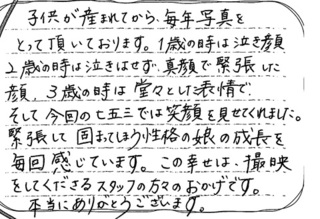 子供が産まれてから、毎年写真を
とって頂いております。1歳の時は泣き顔
2歳の時は泣きはせず、真顔で緊張した
顔、3歳の時は堂々とした表情で
そして今回の七五三では笑顔を見せてくれました。
緊張して固まってしまう性格の娘の成長を
毎回感じています。この幸せは、撮映
をしてくださるスタッフの方々のおかげです。
本当にありがとうございます。